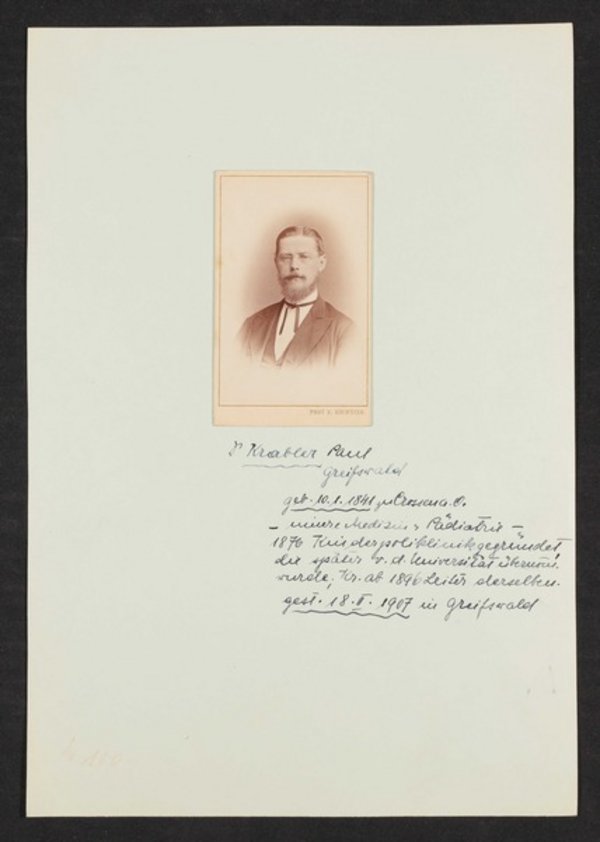 Dr Krabler Paul
Greifswald
geb. 10.1.1841 zu Crossen a. O.
– innere Medizin u. Pädiatrie –
1876 Kinderpoliklinik gegründet,
die später v. d. Universität übernom.
wurde, Kr. ab 1896 Leiter derselben.
gest. 18.II.1907 in Greifswald